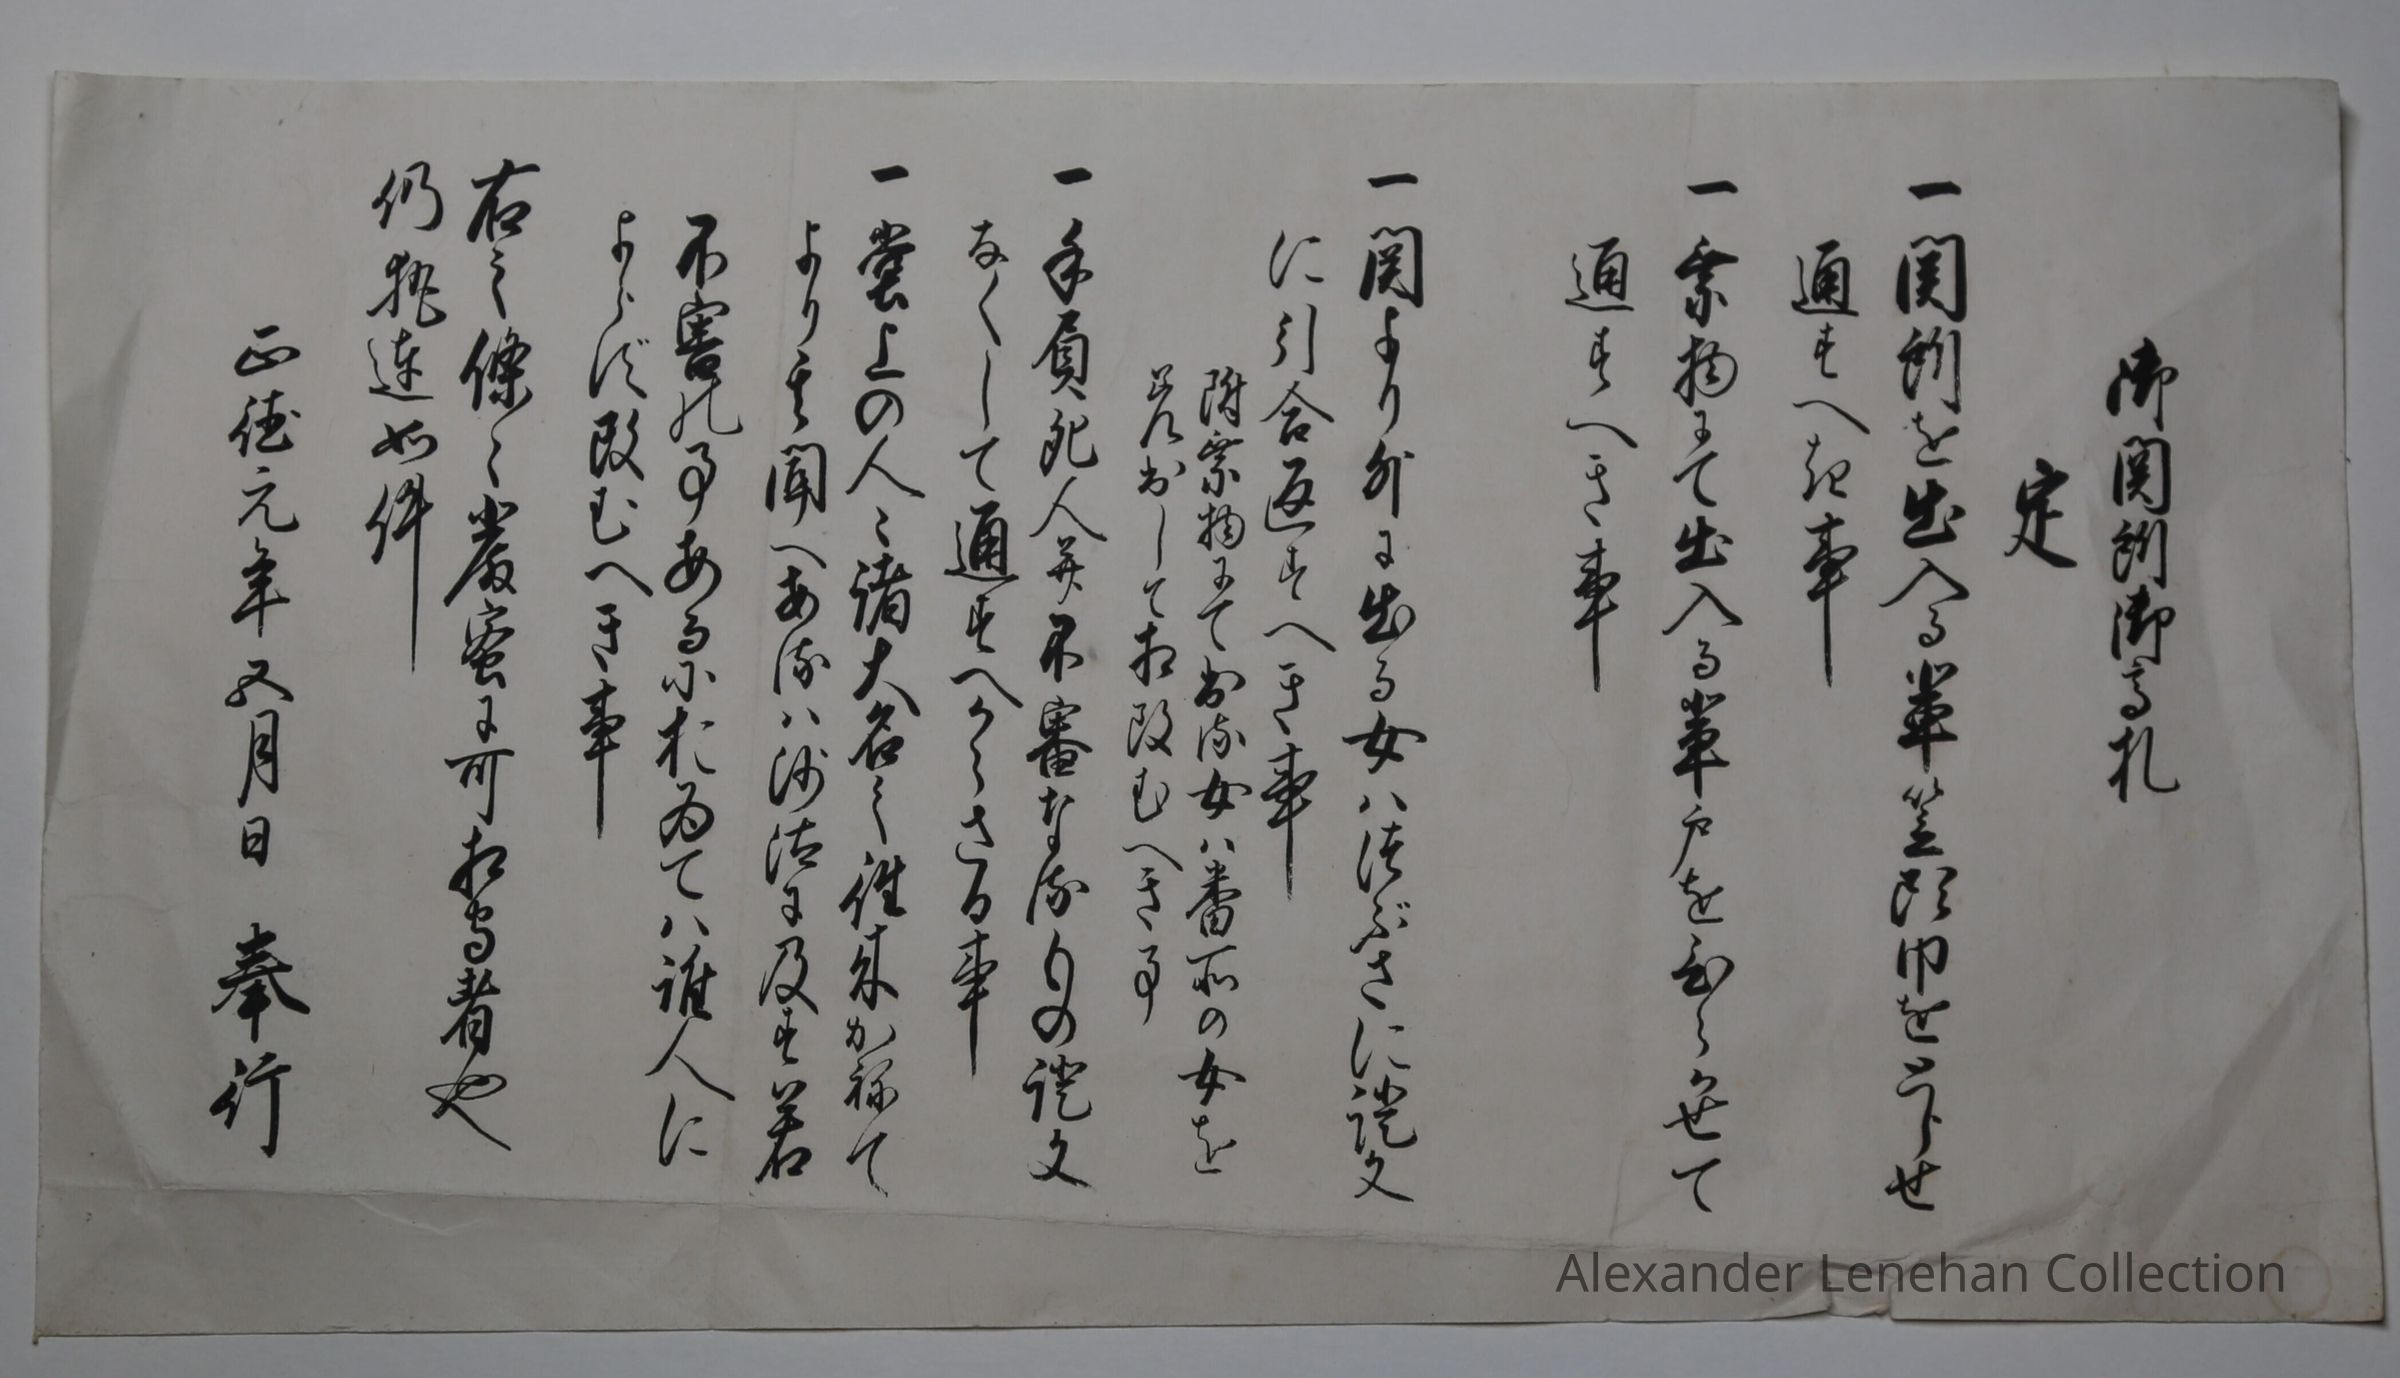 御関所御高札
定
一関所を出入る輩笠頭巾をとらせ
通すへき事
一乗物にて出入る輩戸をひらかせて
通すへき事
一関より外に出る女ハつぶさに證文
に引合返すへき事
附乗物にて出る女ハ番所の女を
差出して相改むへき事
一手負死人并不審なるものの證文
なくして通すへからさる事
一堂上の人々諸大名之往来かねて
より其聞へあるハ沙汰に及す若
不審の事あるに於ゐてハ誰人に
よらず改むへき事
右之條々厳蜜に可相守者也
仍執達如件
正徳元年五月日 奉行
Alexander Lenehan Collection